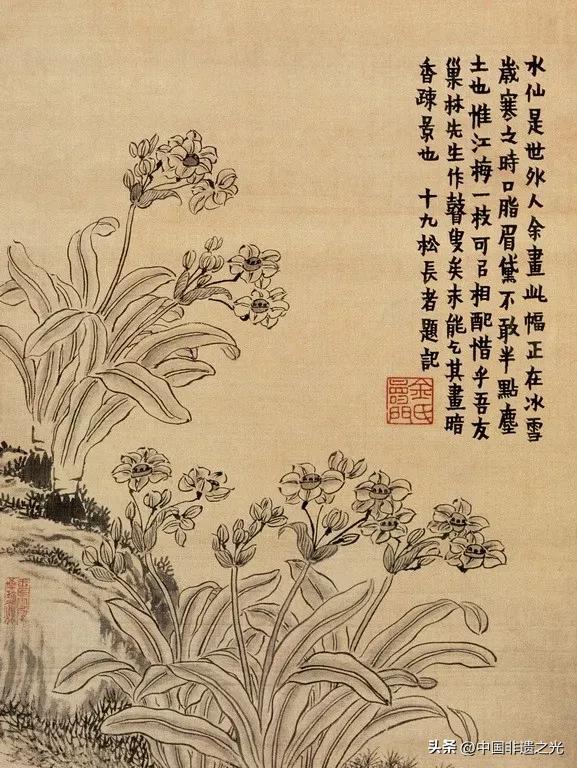 水仙是世外人余畫此幅正在冰雪
歲寒之時口脂眉黛不敢半點塵
土也惟江梅一枝可㠯相配惜乎吾友
巢林先生作瞽叟矣未能乞其畫暗
香疎景也 十九松長者題記
金氏
壽門
头条 @中国非遗之光